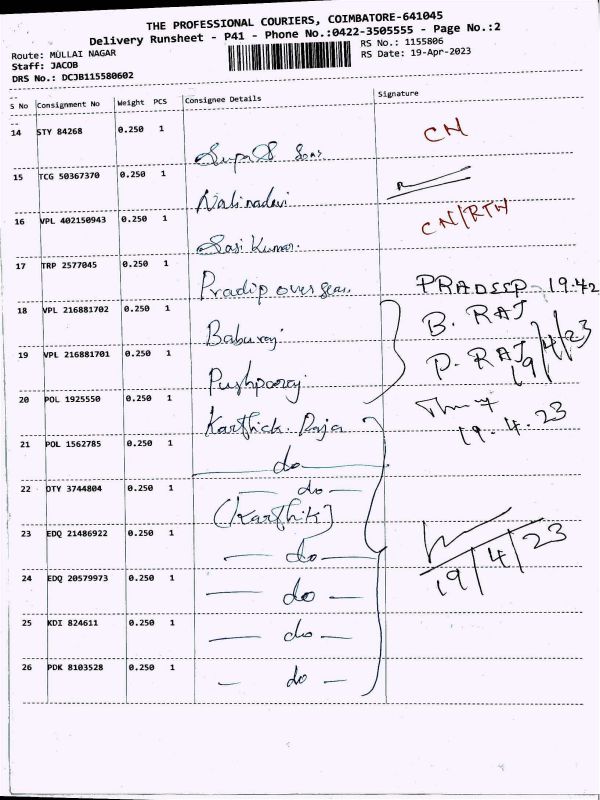 THE PROFESSIONAL COURIERS, COIMBATORE-641045
Delivery Runsheet - P41 - Phone No.:0422-3505555 - Page No.:2
Route: MULLAI NAGAR
RS No.: 1155806
Staff: JACOB
RS Date: 19-Apr-2023
DRS No.: DCJB115580602
S No Consignment No Weight PCS Consignee Details Signature
14 STY 84268 0.250 1 CN
Sons
15 TCG 50367370 0.250 1
Nalinadevi
16 VPL 402150943 0.250 1 CN/RTH
Sasi Kumar.
17 TRP 2577045 0.250 1
Pradip overseas PRADEEP - 19.42
18 VPL 216881702 0.250 1 B. RAJ
Baburaj
19 VPL 216881701 0.250 1 P. RAJ 19/4/23
Pushparaj
20 POL 1925550 0.250 1
Karthick. Raja 19.4.23
21 POL 1562785 0.250 1
— do —
22 DTY 3744804 0.250 1
— do —
(Karthik)
23 EDQ 21486922 0.250 1
— do — 19/4/23
24 EDQ 20579973 0.250 1
— do —
25 KDI 824611 0.250 1
— do —
26 PDK 8103528 0.250 1
— do —